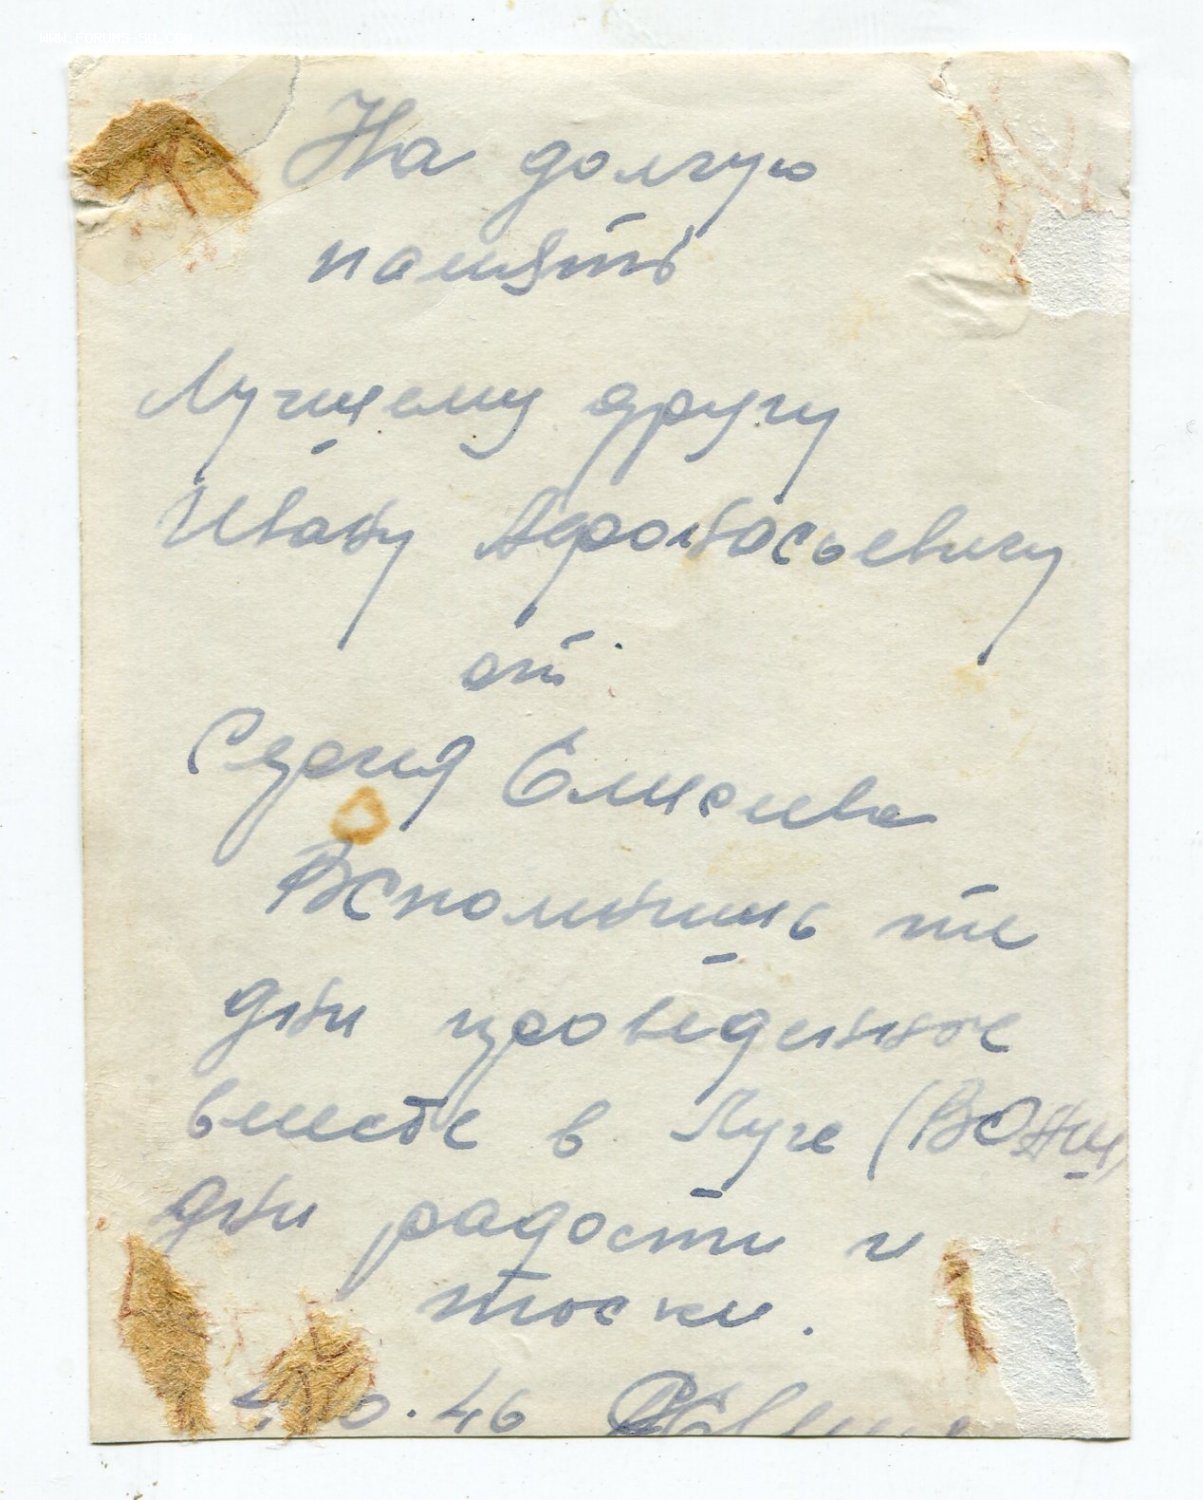 WWW.FORUMS-SU.COM
На долгую
память
Лучшему другу
Ивану Афонасьевичу
от
Сергия Елисиева
Вспомнишь те
дни проведенные
вместе в Луге
дни радости и
тоски.
46